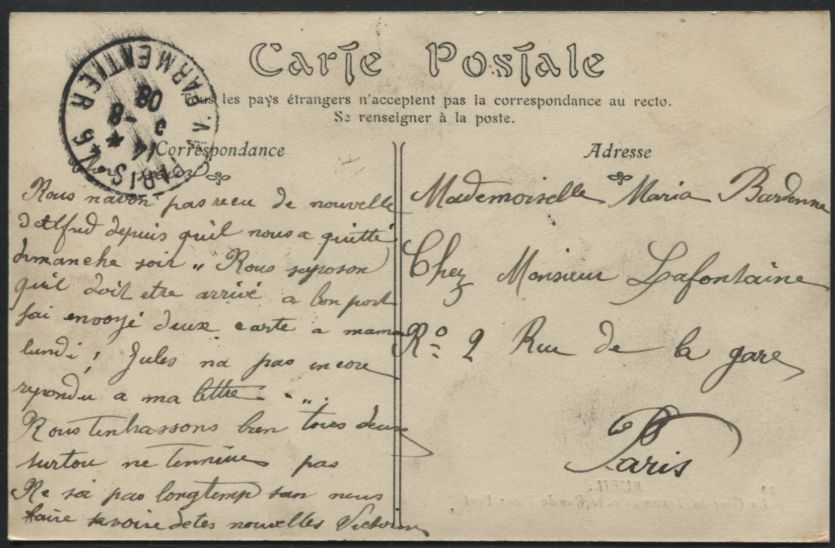 Carte Postale
Tous les pays étrangers n'acceptent pas la correspondance au recto.
Se renseigner à la poste.
PARIS 45
R. V. PARMENTIER
14
9 - 8
08
Correspondance
Nous navon pas recu de nouvelle
dalfred depuis quil nous a quitté
dimanche soir " Nous suposon
quil doit etre arrivé a bon port
jai envoyé deux carte a maman
lundi, Jules na pas encore
repondu a ma lettre
Nous tenbrassons bien tous deux
surtou ne tennuies pas
Ne soi pas longtemp san nous
faire savoire de tes nouvelles Victorine
Adresse
Mademoiselle Maria Bardonne
Chez Monsieur Lafontaine
No 2 Rue de la gare
Paris